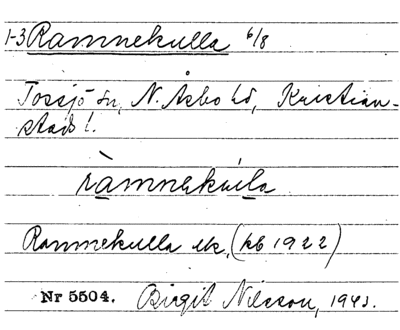 1-3 Ramnekulla 6/8
Tossjö sn, N. Åsbo hd, Kristian-
stads l.
ràmnəkúla
Ramnekulla uk. (kb 1922)
Nr 5504. Birgit Nilsson, 1943.